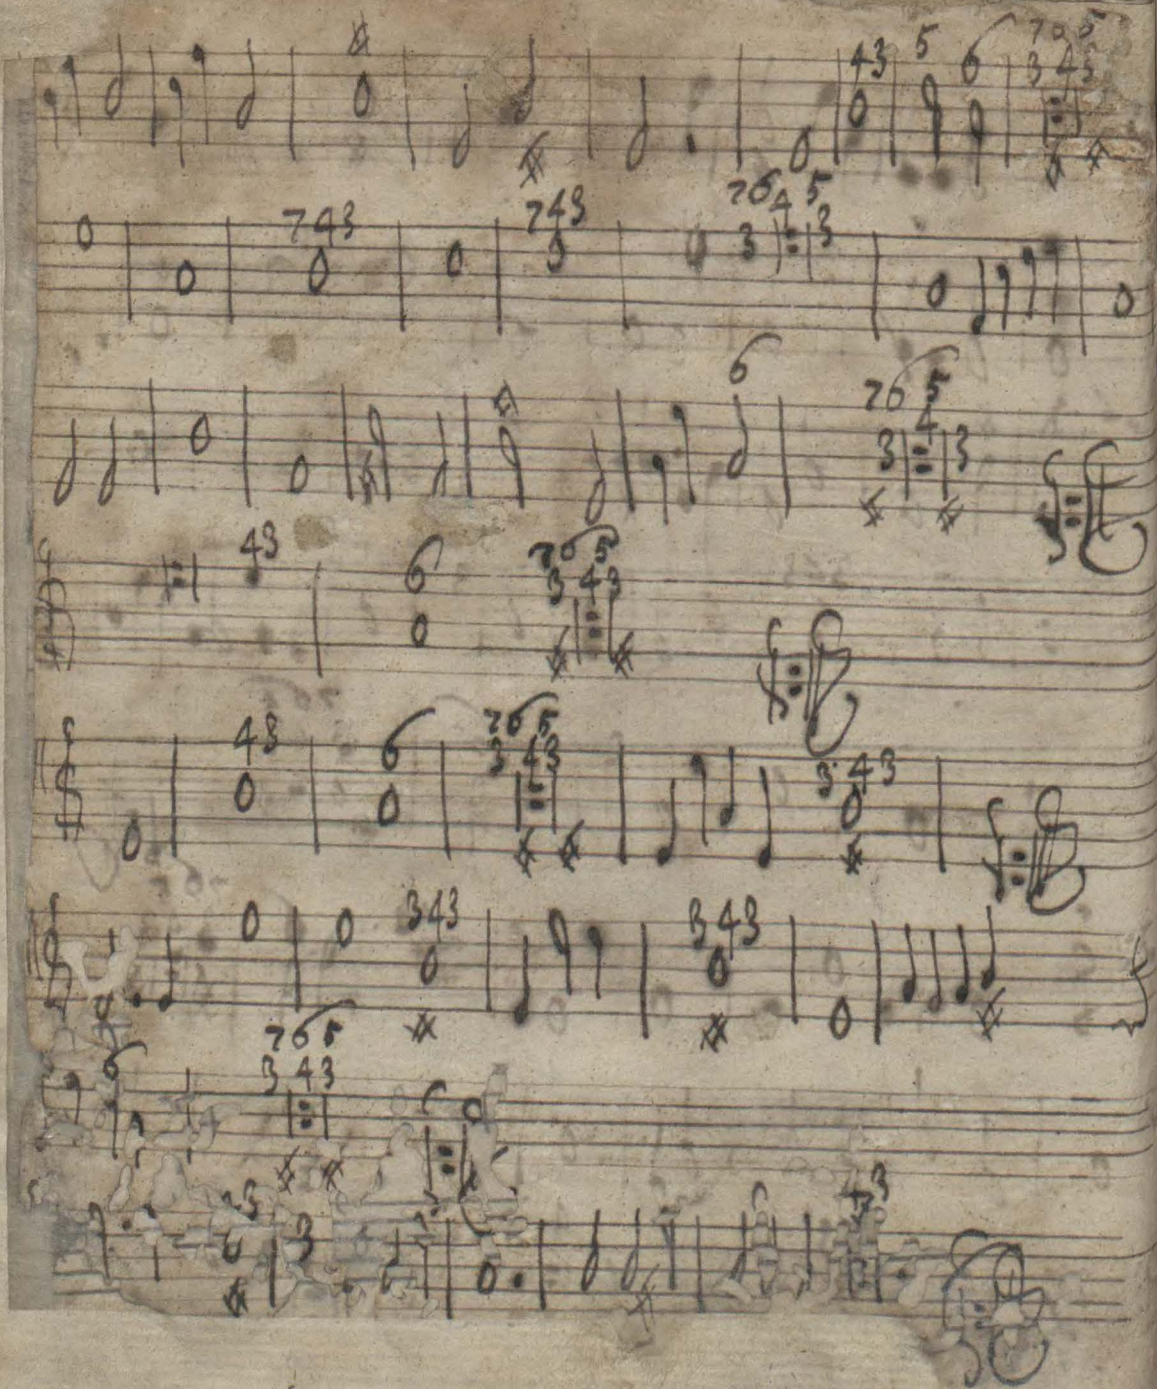 43 5 6 765
343
743 743 76 5
4 3
6 76 5
4
3 3
43 6 76 5
3 43
43 6 765
3 43 3 43
343 343
6 765
3 43
3